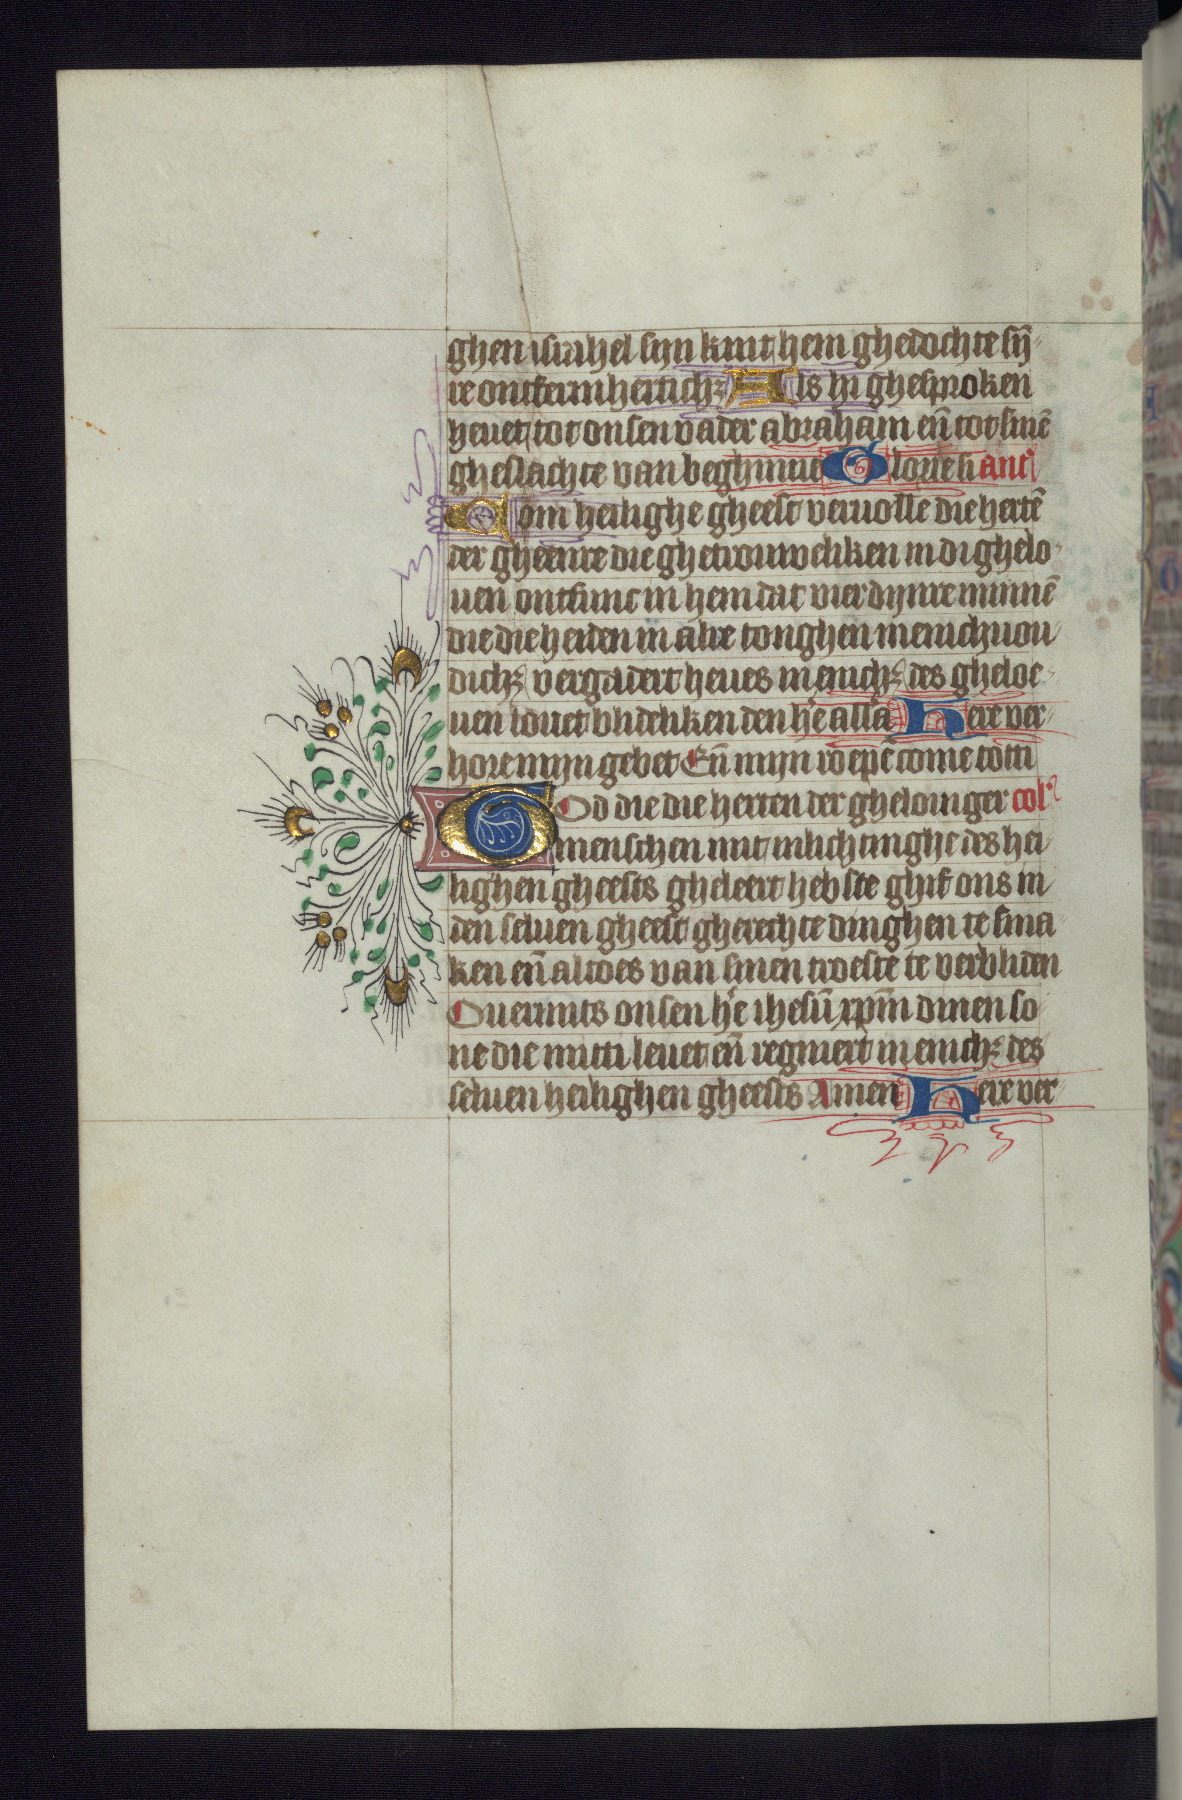 ghen israhel sijn kint hem ghedochte sij̄
re ontfermherticħʒ Als hi ghesproken
heuet tot onsen vader abraham en̄ tot sinē
gheslachte van beghinne Glorie si ant'
Com heilighe gheest veruolle die hertē
der gheenre die ghetrouweliken in di ghelo
uen ontfunc in hem dat vier dijnre minnē
die die heiden in alre tonghen menichuou
dicħʒ vergadert heues in enicħʒ des gheloe
uen louet blideliken den hē̄ all'a Here ver
hore mijn gebet En̄ mijn roepē come totti
God die die herten der gheloiuiger col'
menschen mit inlichtinghe des hei
lighen gheests gheleert hebste ghif ons in
den seluen gheest gherechte dinghen te sma
ken en̄ altoes van sinen troeste te verbliden
Ouermits onsen hē̄ ihesū xpm̄ dinen so
ne die mitti leuet en̄ regniert in enicħʒ des
seluen heilighen gheests Amen Here ver